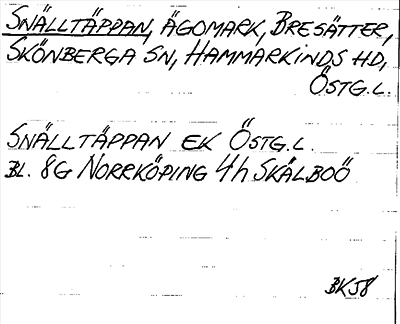 SNÄLLTÄPPAN, ÄGOMARK, BRESÄTTER,
SKÖNBERGA SN, HAMMARKINDS HD,
ÖSTG.L.
SNÄLLTÄPPAN EK ÖSTG.L.
BL. 8G NORRKÖPING 4h SKÄLBOÖ
BK58